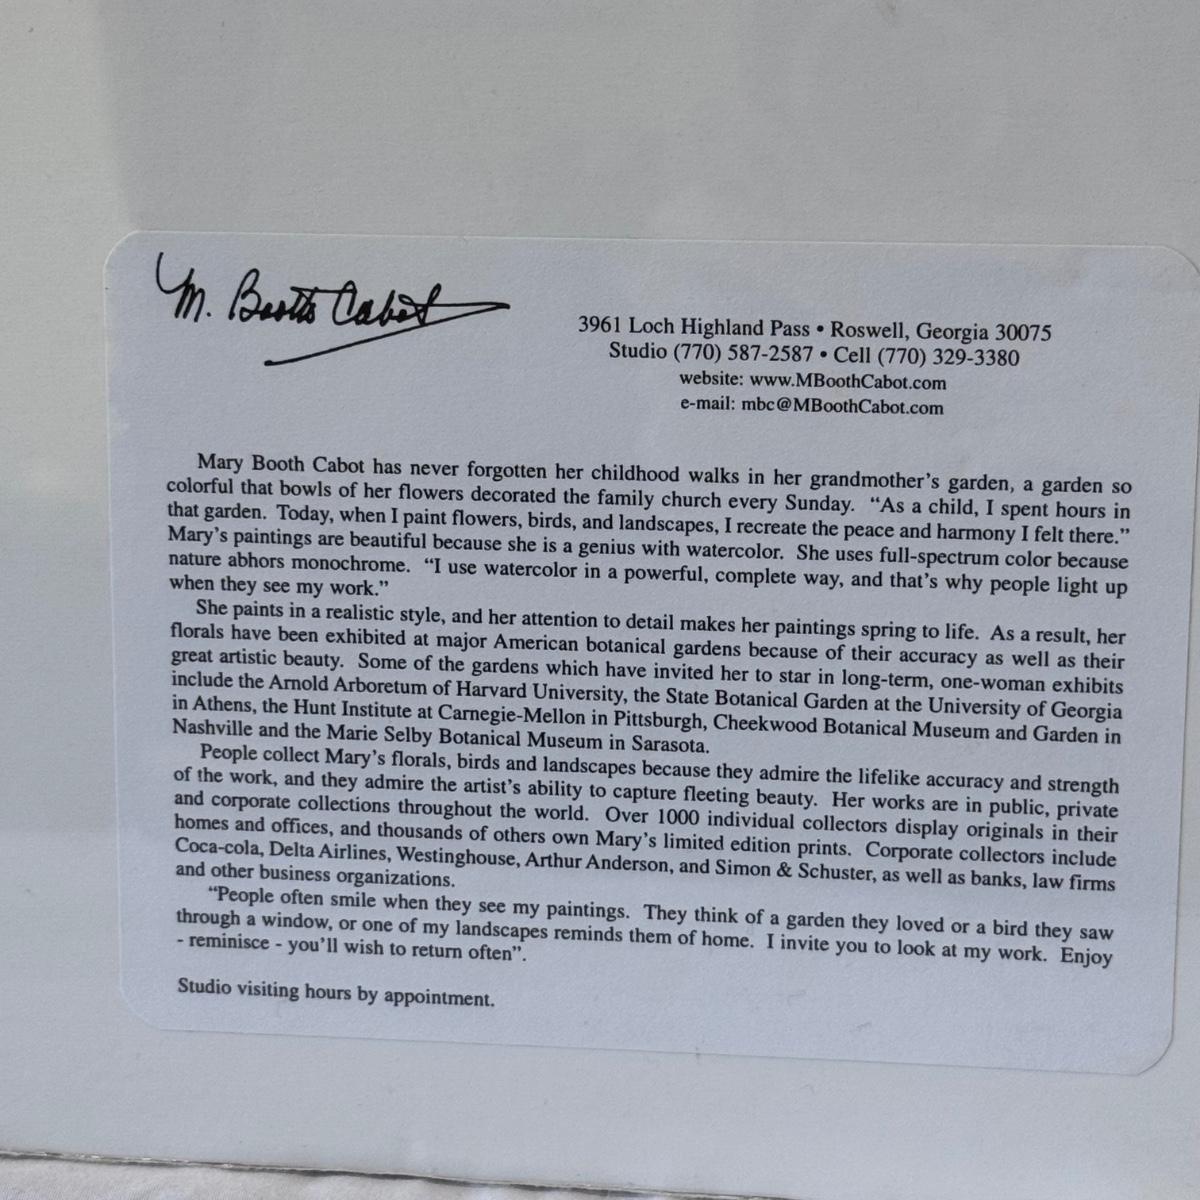 M. Booth Cabot
3961 Loch Highland Pass • Roswell, Georgia 30075
Studio (770) 587-2587 • Cell (770) 329-3380
website: www.MBoothCabot.com
e-mail: mbc@MBoothCabot.com
Mary Booth Cabot has never forgotten her childhood walks in her grandmother's garden, a garden so
colorful that bowls of her flowers decorated the family church every Sunday. “As a child, I spent hours in
that garden. Today, when I paint flowers, birds, and landscapes, I recreate the peace and harmony I felt there.”
Mary's paintings are beautiful because she is a genius with watercolor. She uses full-spectrum color because
nature abhors monochrome. “I use watercolor in a powerful, complete way, and that's why people light up
when they see my work.”
She paints in a realistic style, and her attention to detail makes her paintings spring to life. As a result, her
florals have been exhibited at major American botanical gardens because of their accuracy as well as their
great artistic beauty. Some of the gardens which have invited her to star in long-term, one-woman exhibits
include the Arnold Arboretum of Harvard University, the State Botanical Garden at the University of Georgia
in Athens, the Hunt Institute at Carnegie-Mellon in Pittsburgh, Cheekwood Botanical Museum and Garden in
Nashville and the Marie Selby Botanical Museum in Sarasota.
People collect Mary's florals, birds and landscapes because they admire the lifelike accuracy and strength
of the work, and they admire the artist's ability to capture fleeting beauty. Her works are in public, private
and corporate collections throughout the world. Over 1000 individual collectors display originals in their
homes and offices, and thousands of others own Mary's limited edition prints. Corporate collectors include
Coca-cola, Delta Airlines, Westinghouse, Arthur Anderson, and Simon & Schuster, as well as banks, law firms
and other business organizations.
“People often smile when they see my paintings. They think of a garden they loved or a bird they saw
through a window, or one of my landscapes reminds them of home. I invite you to look at my work. Enjoy
- reminisce - you'll wish to return often”.
Studio visiting hours by appointment.